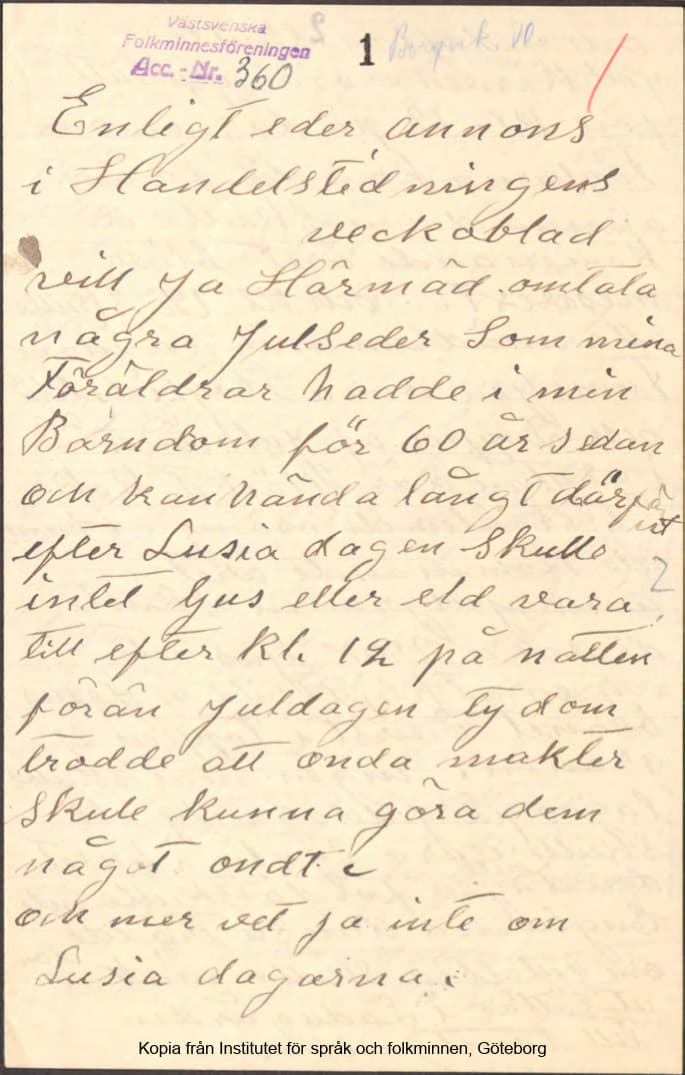 Västsvenska
Folkminnesföreningen
Acc.-Nr. 360
1
Enligt eder annons
i Handelstidningens
veckoblad
vill ja Härmäd omtala
några Julseder Som mina
Föräldrar hadde i min
Barndom för 60 år sedan
och kanhända långt därför
efter Lusia dagen Skulle
intet ljus eller eld vara
till efter kl. 12 på natten
förän Juldagen ty dom
trodde att onda makter
Skule kunna göra dem
något ondt.
och mer vet ja inte om
Lusia dagarna.
Kopia från Institutet för språk och folkminnen, Göteborg